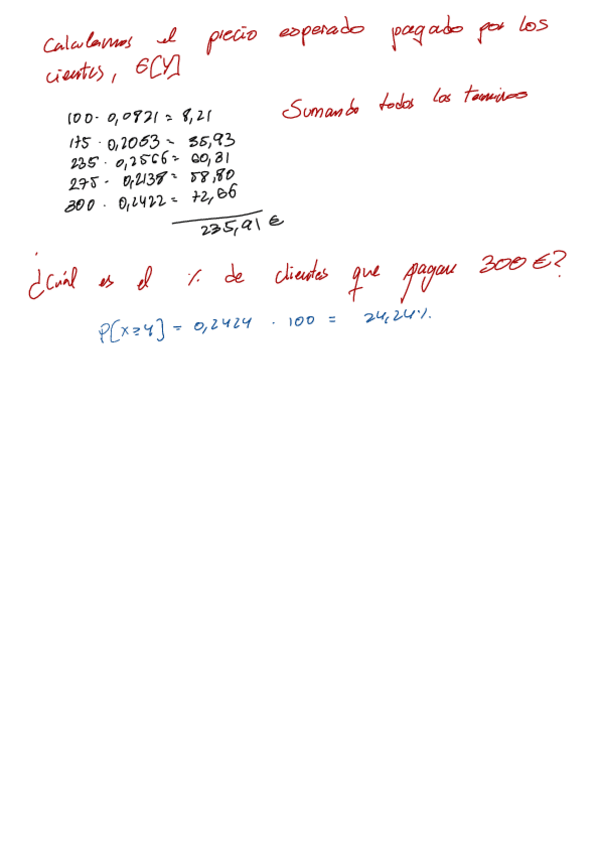 Calculamos el precio esperado pagado por los
cientes, E[Y]
100 · 0,0821 = 8,21
Sumando todos los terminos
175 · 0,2053 = 35,93
235 · 0,2566 = 60,31
275 · 0,2138 = 58,80
300 · 0,2422 = 72,66
235,91 €
¿Cuál es el % de clientes que pagan 300 €?
P[X≥4] = 0,2424 · 100 = 24,24%.